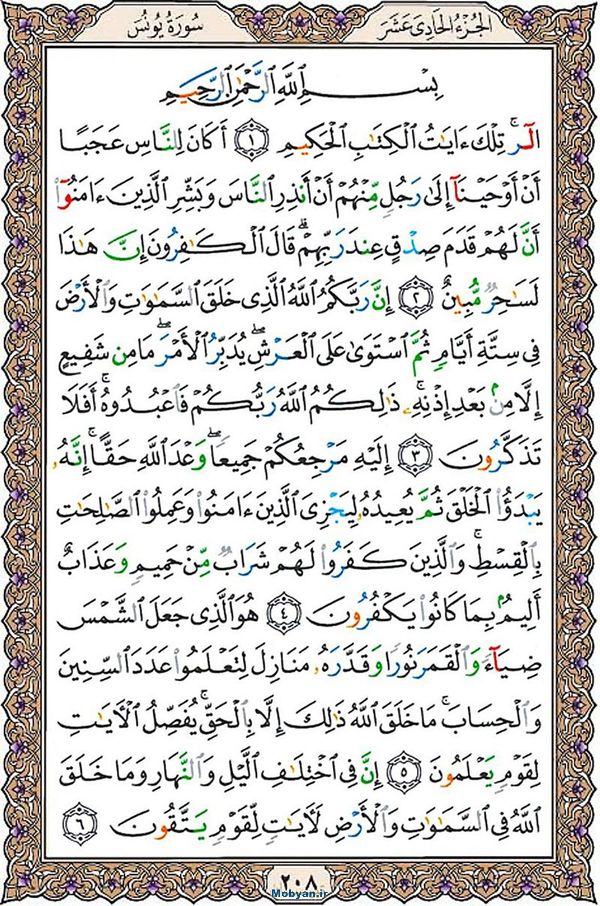 الجُزْءُ الحَادِى عَشَرَ
سُورَةُ يُونُسَ
بِسْمِ ٱللَّهِ ٱلرَّحْمَٰنِ ٱلرَّحِيمِ
الٓر ۚ تِلْكَ ءَايَٰتُ ٱلْكِتَٰبِ ٱلْحَكِيمِ ۝١ أَكَانَ لِلنَّاسِ عَجَبًا
أَنْ أَوْحَيْنَآ إِلَىٰ رَجُلٍ مِّنْهُمْ أَنْ أَنذِرِ ٱلنَّاسَ وَبَشِّرِ ٱلَّذِينَ ءَامَنُوٓا۟
أَنَّ لَهُمْ قَدَمَ صِدْقٍ عِندَ رَبِّهِمْ ۗ قَالَ ٱلْكَٰفِرُونَ إِنَّ هَٰذَا
لَسَٰحِرٌ مُّبِينٌ ۝٢ إِنَّ رَبَّكُمُ ٱللَّهُ ٱلَّذِى خَلَقَ ٱلسَّمَٰوَٰتِ وَٱلْأَرْضَ
فِى سِتَّةِ أَيَّامٍ ثُمَّ ٱسْتَوَىٰ عَلَى ٱلْعَرْشِ ۖ يُدَبِّرُ ٱلْأَمْرَ ۖ مَا مِن شَفِيعٍ
إِلَّا مِنۢ بَعْدِ إِذْنِهِۦ ۚ ذَٰلِكُمُ ٱللَّهُ رَبُّكُمْ فَٱعْبُدُوهُ ۚ أَفَلَا
تَذَكَّرُونَ ۝٣ إِلَيْهِ مَرْجِعُكُمْ جَمِيعًا ۖ وَعْدَ ٱللَّهِ حَقًّا ۚ إِنَّهُۥ
يَبْدَؤُا۟ ٱلْخَلْقَ ثُمَّ يُعِيدُهُۥ لِيَجْزِىَ ٱلَّذِينَ ءَامَنُوا۟ وَعَمِلُوا۟ ٱلصَّٰلِحَٰتِ
بِٱلْقِسْطِ ۚ وَٱلَّذِينَ كَفَرُوا۟ لَهُمْ شَرَابٌ مِّنْ حَمِيمٍ وَعَذَابٌ
أَلِيمٌۢ بِمَا كَانُوا۟ يَكْفُرُونَ ۝٤ هُوَ ٱلَّذِى جَعَلَ ٱلشَّمْسَ
ضِيَآءً وَٱلْقَمَرَ نُورًا وَقَدَّرَهُۥ مَنَازِلَ لِتَعْلَمُوا۟ عَدَدَ ٱلسِّنِينَ
وَٱلْحِسَابَ ۚ مَا خَلَقَ ٱللَّهُ ذَٰلِكَ إِلَّا بِٱلْحَقِّ ۚ يُفَصِّلُ ٱلْءَايَٰتِ
لِقَوْمٍ يَعْلَمُونَ ۝٥ إِنَّ فِى ٱخْتِلَٰفِ ٱلَّيْلِ وَٱلنَّهَارِ وَمَا خَلَقَ
ٱللَّهُ فِى ٱلسَّمَٰوَٰتِ وَٱلْأَرْضِ لَءَايَٰتٍ لِّقَوْمٍ يَتَّقُونَ ۝٦
٢٠٨
Mobyan.ir